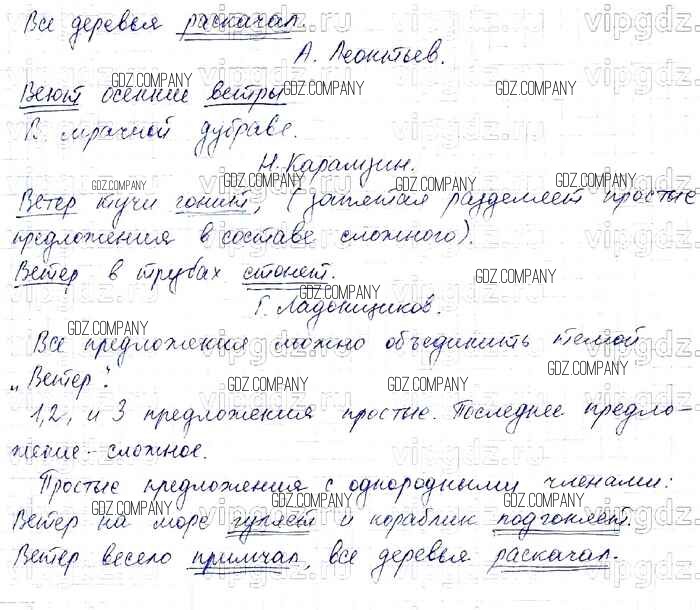 Все деревья раскачал.
А. Леонтьев.
Веют осенние ветры
В мрачной дубраве.
Н. Карамзин.
Ветер тучи гонит, (запятая разделяет простые
предложения в составе сложного).
Ветер в трубах стонет.
Г. Ладонщиков.
Все предложения можно объединить темой
„Ветер".
1,2, и 3 предложения простые. Последнее предло-
жение - сложное.
Простые предложения с однородными членами:
Ветер на море гуляет и кораблик подгоняет.
Ветер весело примчал, все деревья раскачал.
vipgdz.ru
GDZ.COMPANY